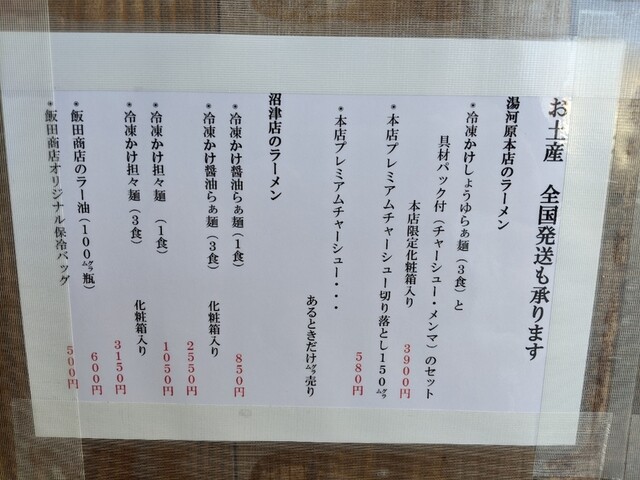 お土産　全国発送も承ります
湯河原本店のラーメン
＊冷凍かけしょうゆらぁ麺（3食）と
具材パック付（チャーシュー・メンマ）のセット
本店限定化粧箱入り
3900円
＊本店プレミアムチャーシュー切り落とし150㌘
580円
＊本店プレミアムチャーシュー・・・
あるときだけ㌘売り
沼津店のラーメン
＊冷凍かけ醤油らぁ麺（1食）
850円
＊冷凍かけ醤油らぁ麺（3食）
化粧箱入り
2550円
＊冷凍かけ担々麺（1食）
1050円
＊冷凍かけ担々麺（3食）
化粧箱入り
3150円
＊飯田商店のラー油（100㌘瓶）
600円
＊飯田商店オリジナル保冷バッグ
500円